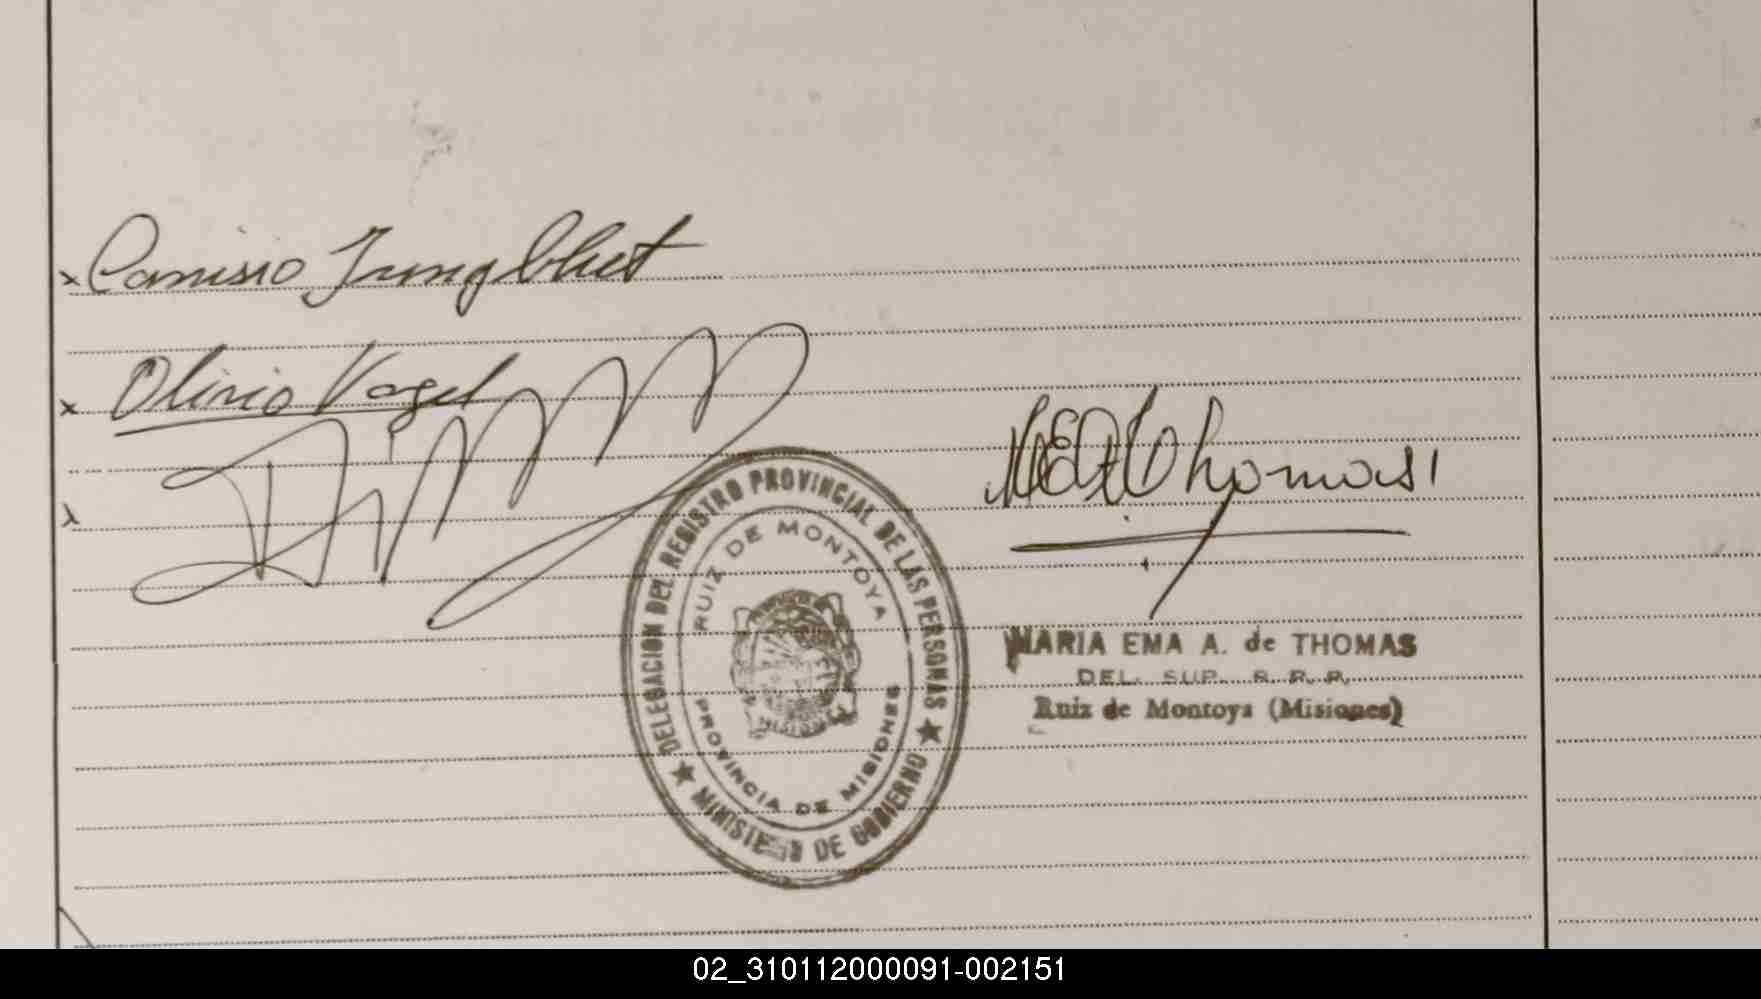 x Canisio Jungblut
x Olirio Vogel
x
DELEGACION DEL REGISTRO PROVINCIAL DE LAS PERSONAS
RUIZ DE MONTOYA
MISIONES
PROVINCIA DE MISIONES
★ MINISTERIO DE GOBIERNO ★
MEA de Thomas
MARIA EMA A. de THOMAS
DEL. SUP. R. P. P.
Ruiz de Montoya (Misiones)
02_310112000091-002151